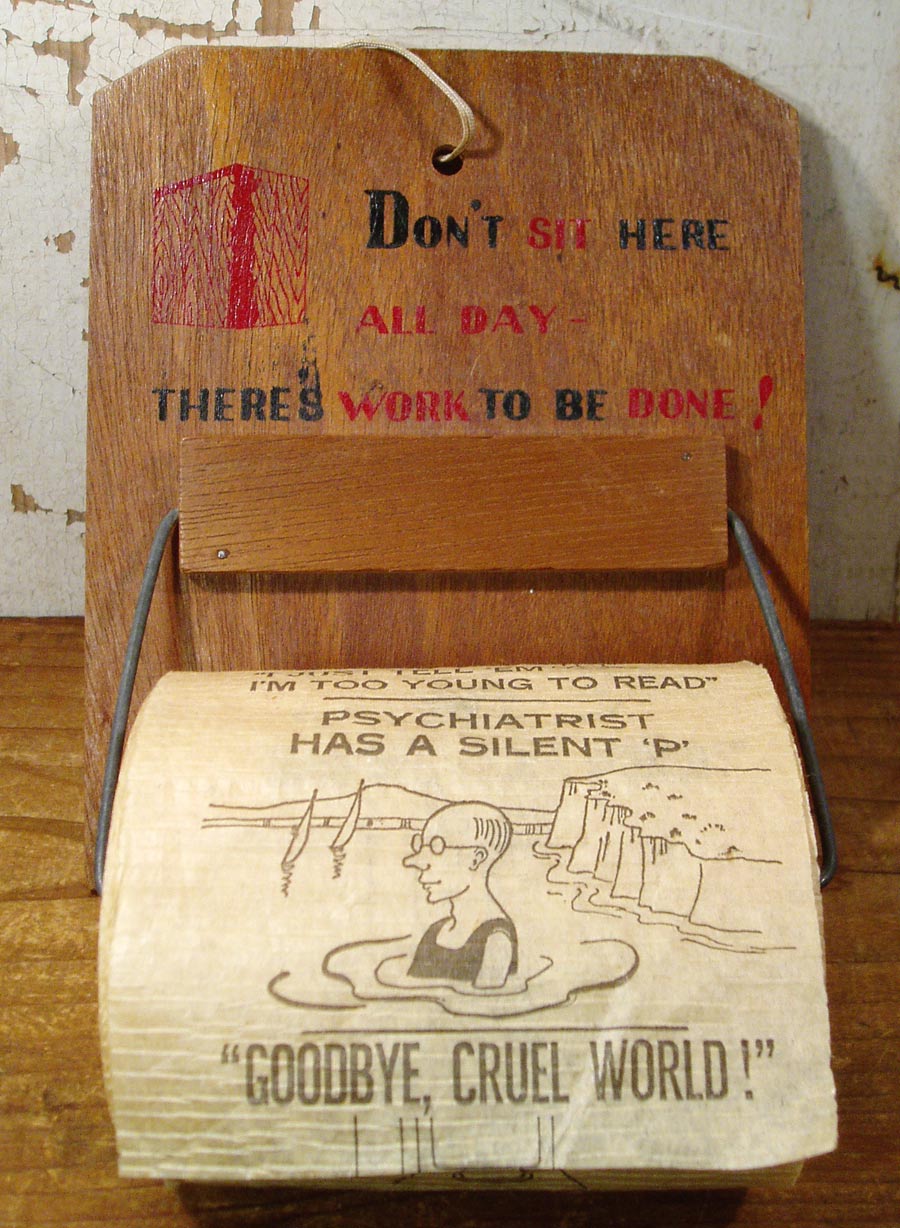 DON'T SIT HERE
ALL DAY-
THERE'S WORK TO BE DONE!
"I JUST TELL 'EM
I'M TOO YOUNG TO READ"
PSYCHIATRIST
HAS A SILENT 'P'
"GOODBYE, CRUEL WORLD!"